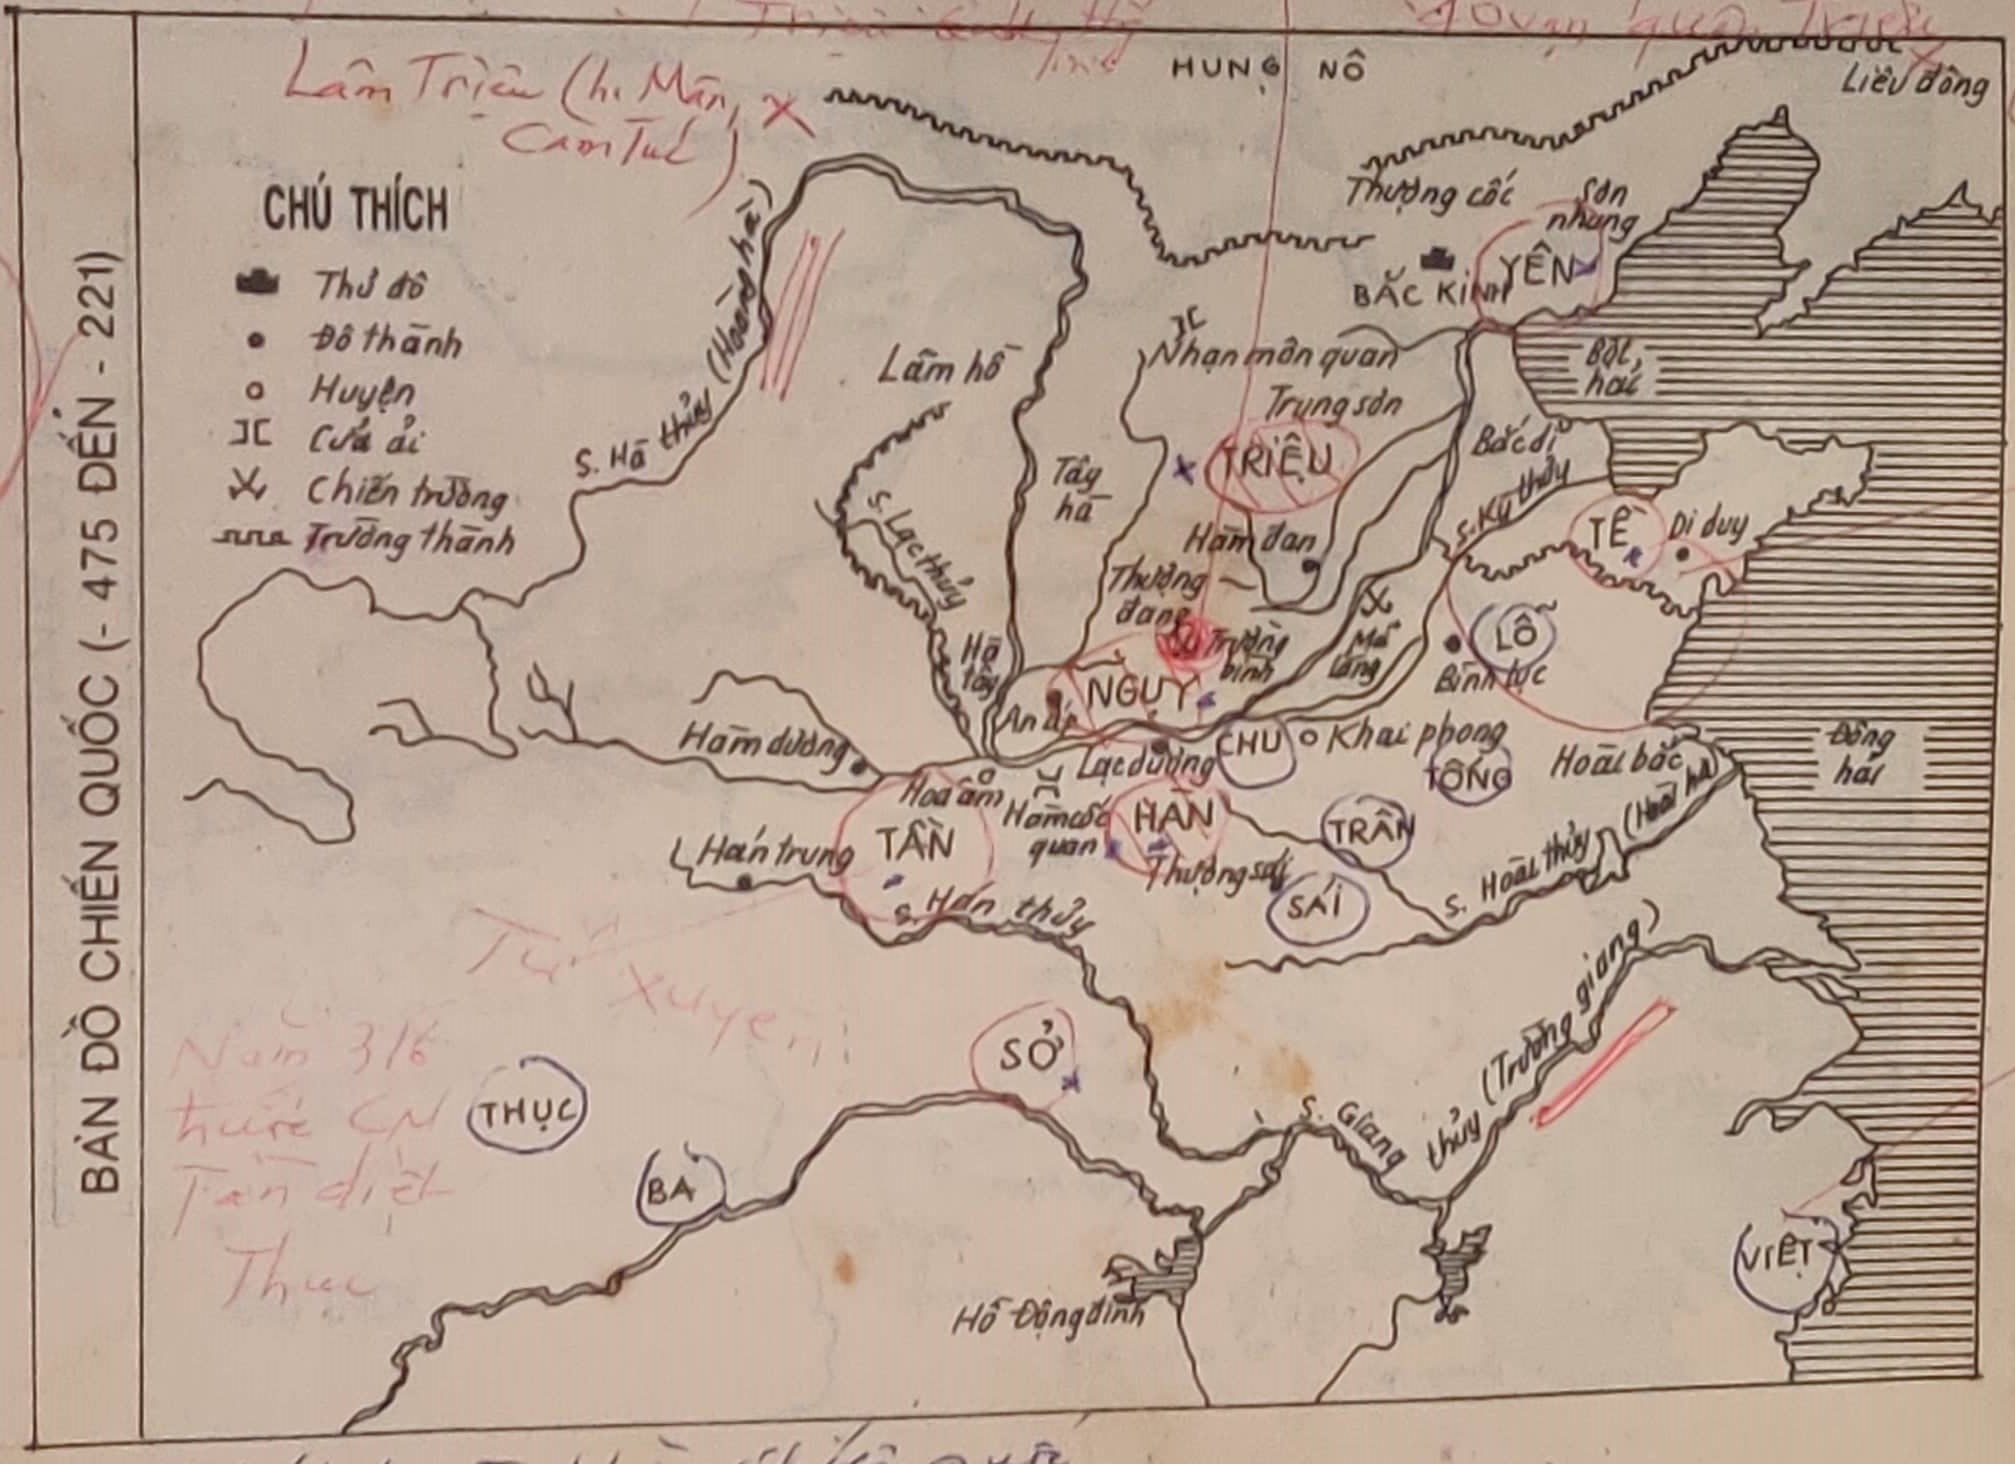 HUNG NÔ
Liêu đông
Lâm Triệu (h. Mân,
Cam Túc)
CHÚ THÍCH
Thủ đô
Đô thành
Huyện
Cửa ải
Chiến trường
Trường thành
BẢN ĐỒ CHIẾN QUỐC (- 475 ĐẾN - 221)
S. Hà thủy (Hoàng hà)
Thượng cốc
Sơn
nhung
YÊN
BẮC KINH
Nhạn môn quan
Lâm hồ
Trung sơn
Bột
hải
TRIỆU
Bắc di
Tây
hà
S. Lạc thủy
S. Kỳ thủy
TỀ
Di duy
Hàm đan
Thượng
đang
Trường
bình
Mã
lăng
LỖ
Bình lục
Hà
tây
NGỤY
An ấp
Hàm dương
Lạc dương
CHU
Khai phong
TỐNG
Hoài bắc
Đông
hải
Hoa âm
Hàm cốc
quan
HÀN
TRẦN
TẦN
Hán trung
Thượng sái
SÁI
S. Hoài thủy (Hoài hà)
S. Hán thủy
Tứ Xuyên
Năm 316
trước CN
Tần diệt
Thục
THỤC
BA
SỞ
S. Giang thủy (Trường giang)
VIỆT
Hồ Động đình